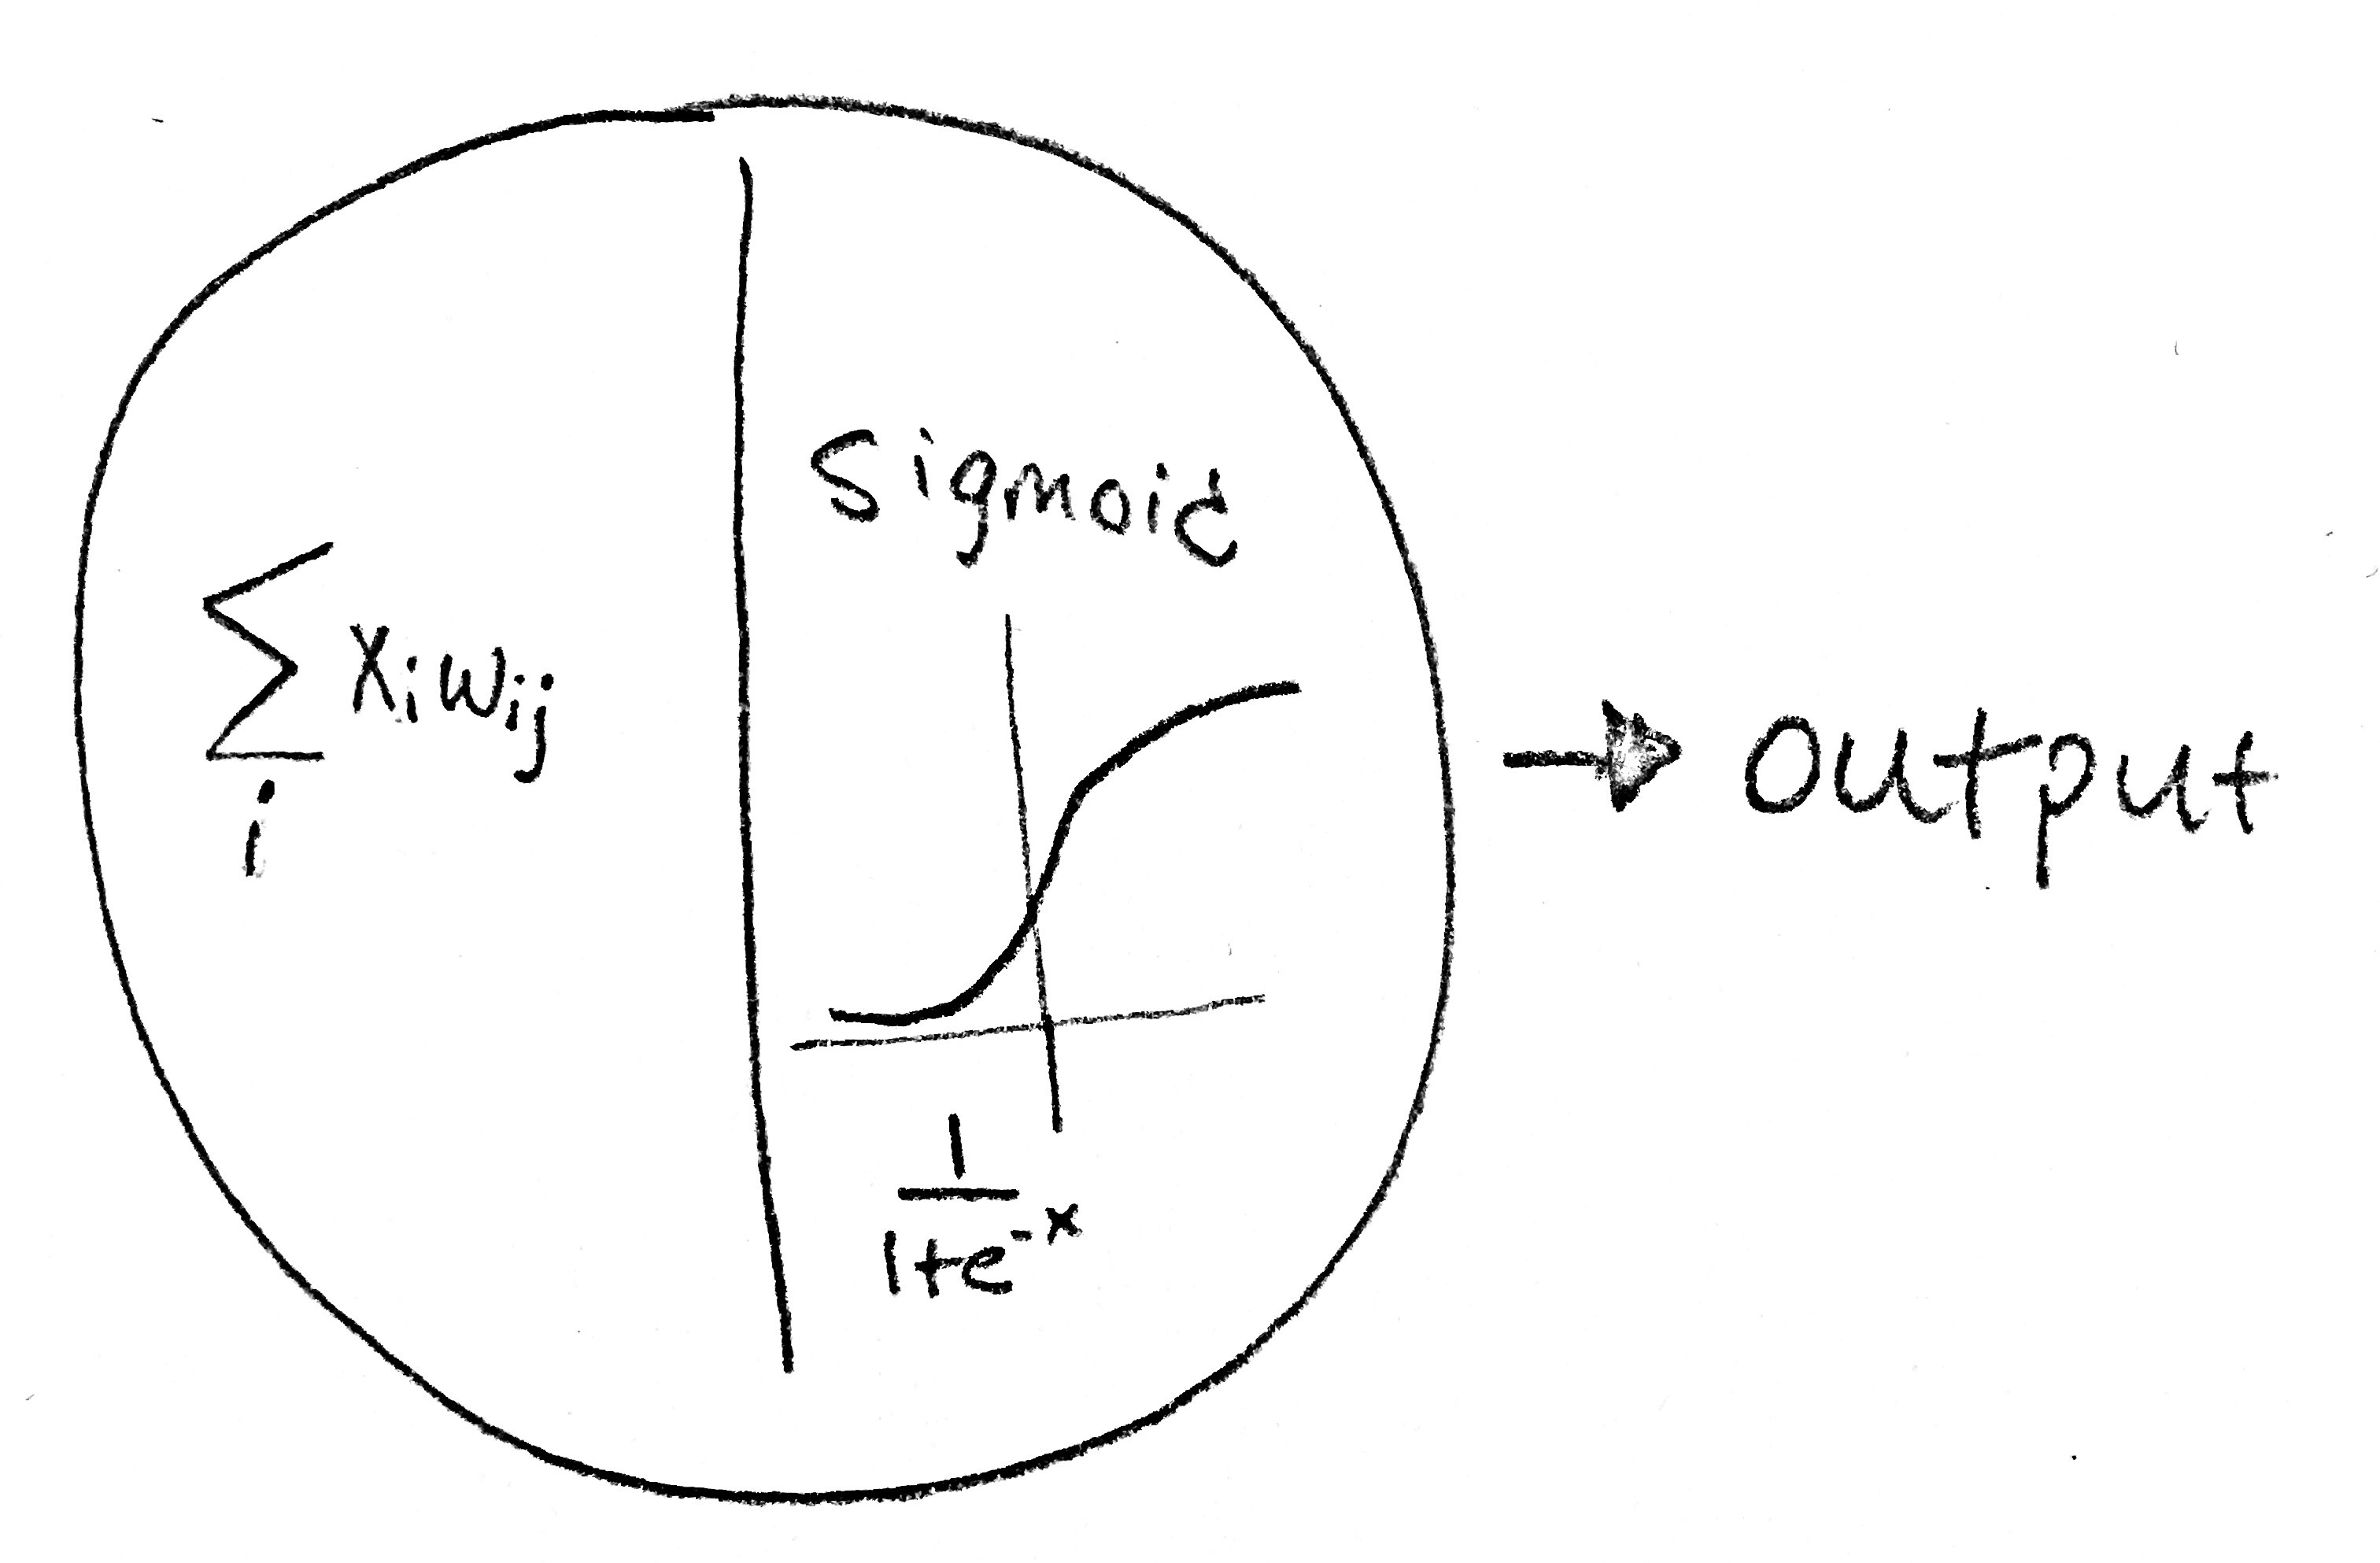 ∑ xᵢwᵢⱼ
i
Sigmoid
1
1+e⁻ˣ
output